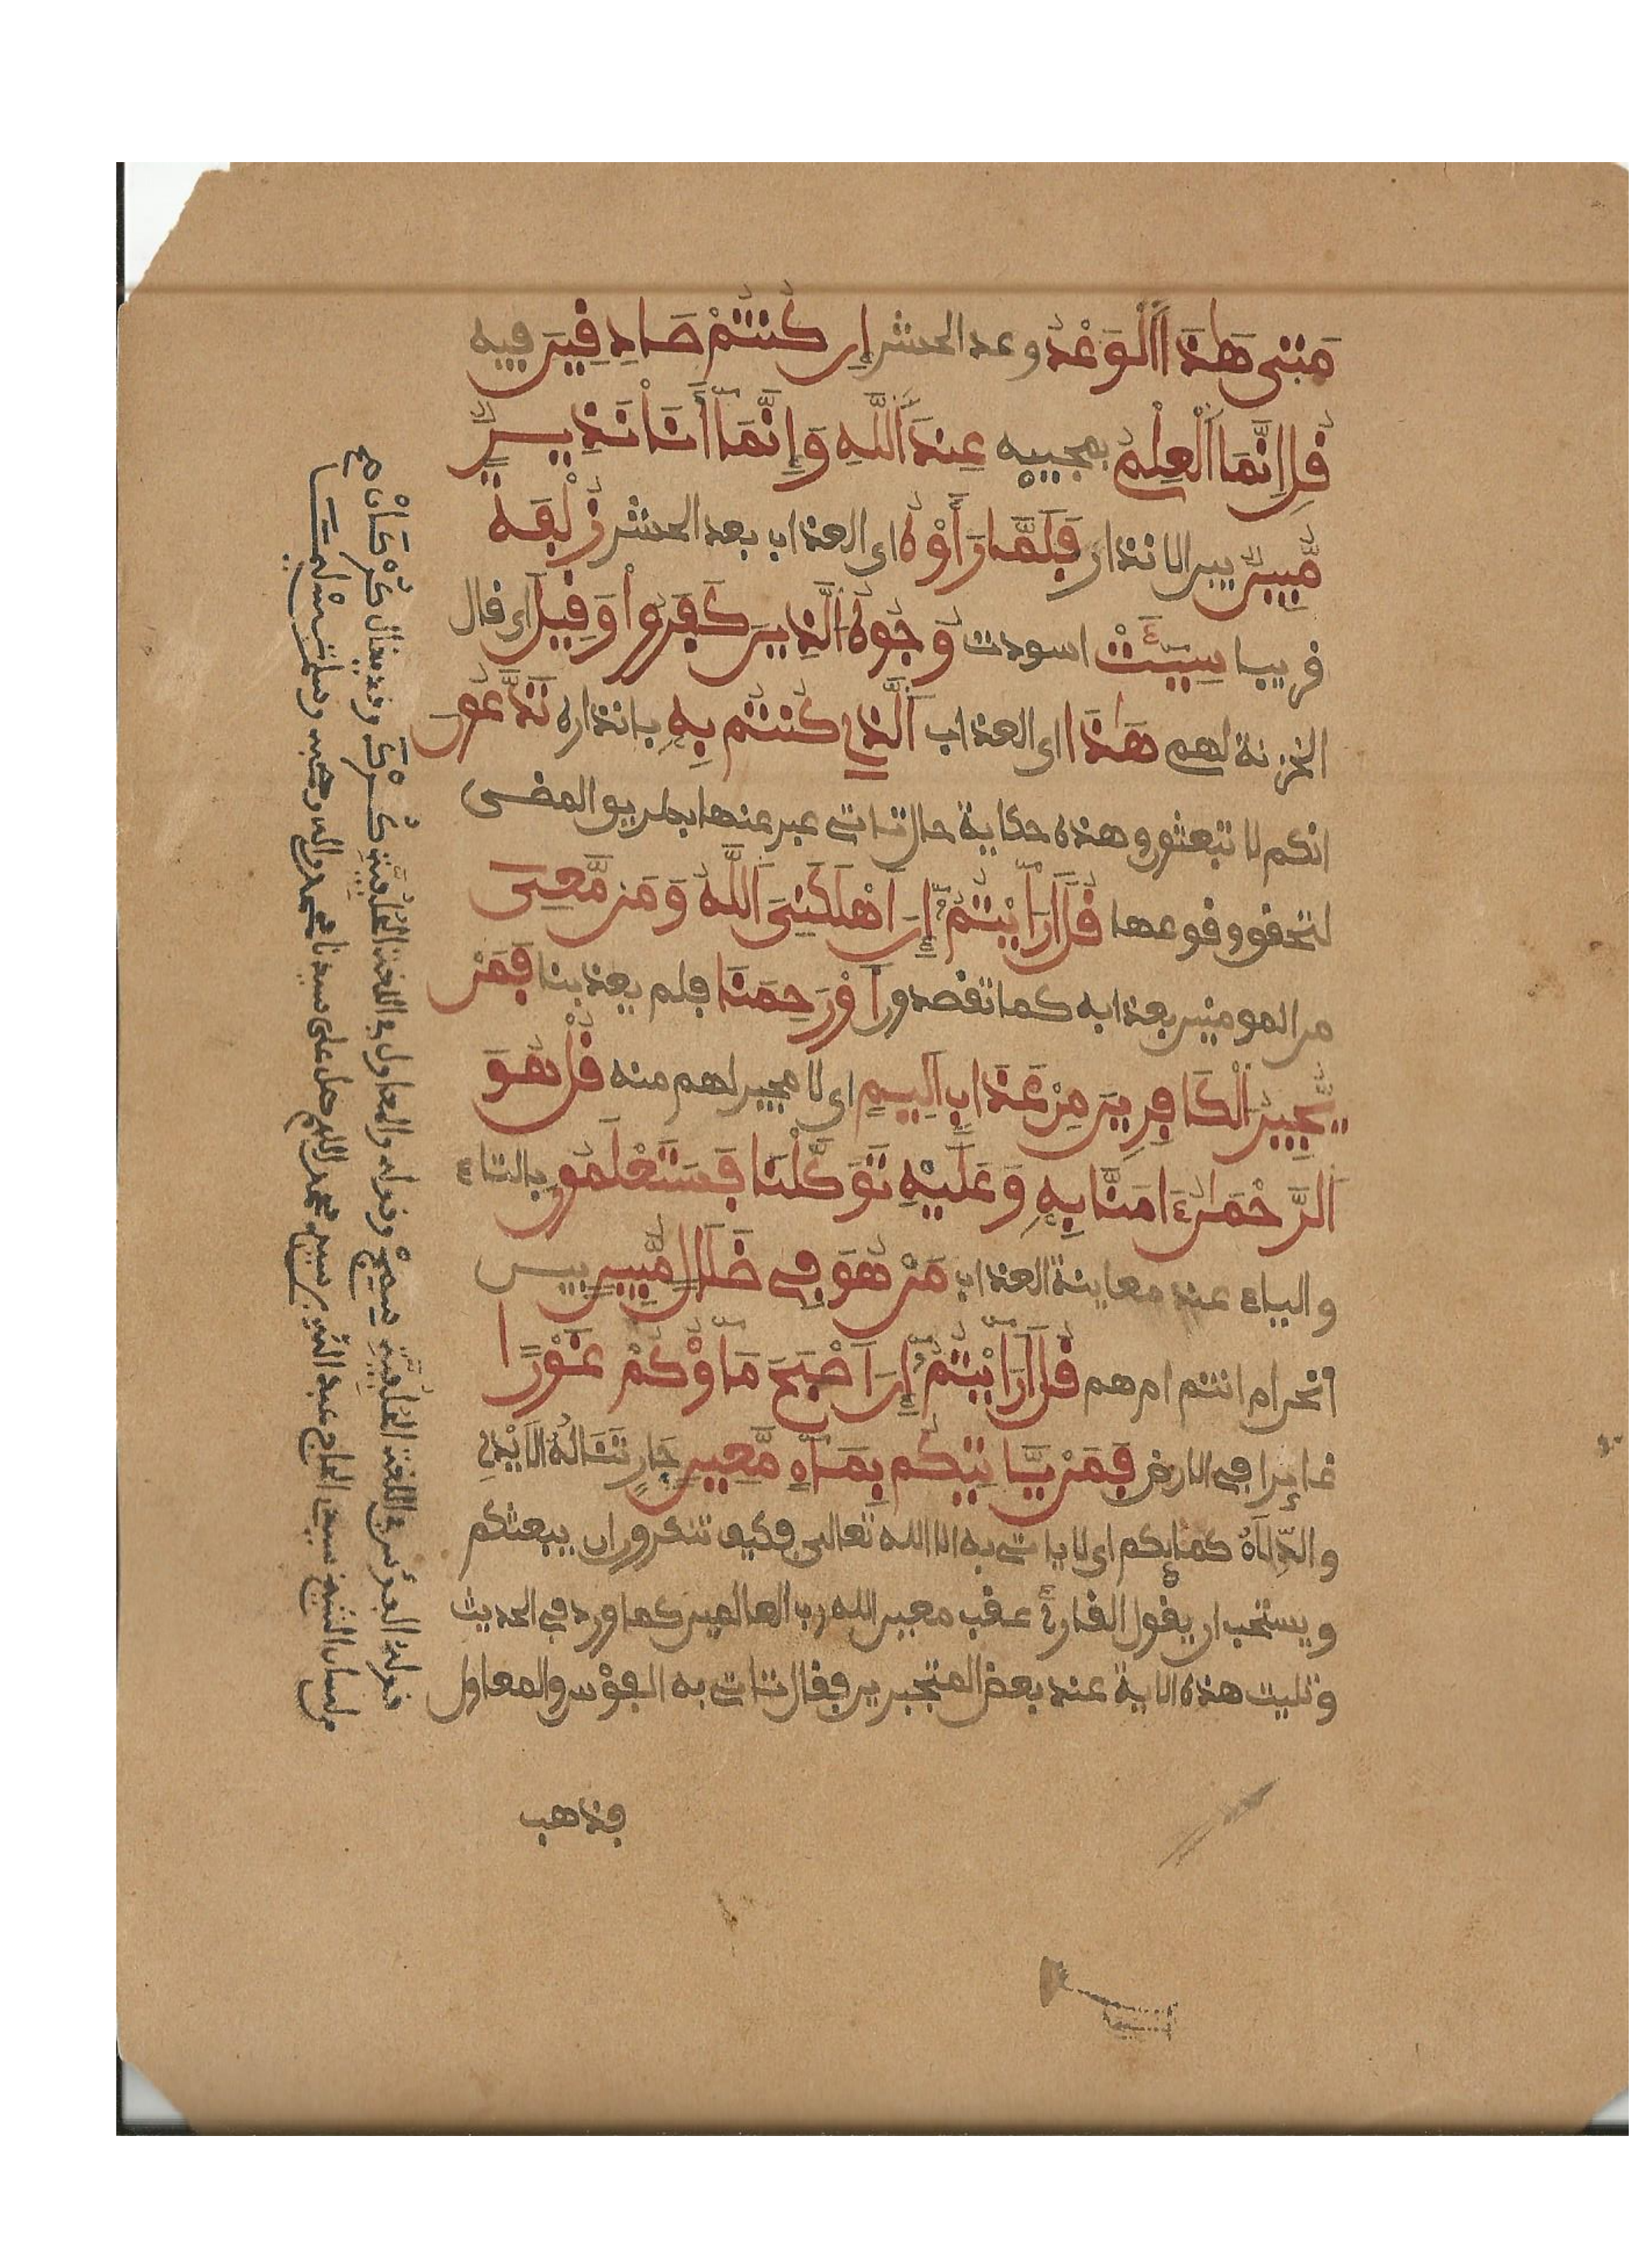 مَتىٰ هَٰذَا اَلْوَعْدُ وعد الحشر إِن كُنتُمْ صَادِقِينَ فيه
قُلِ إِنَّمَا اَلْعِلْمُ بمجييه عِندَ اَللَّهِ وَإِنَّمَا أَنَا نَذِيرٌ
مُّبِينٌ بين الانذار فَلَمَّا رَأَوْهُ اى العذاب بعد الحشر زُلْفَةً
قريبا سِيٓـَٔتْ اسودت وُجُوهُ اُلَّذِينَ كَفَرُواْ وَقِيلَ اى قال
الخزنة لهم هَٰذَا اى العذاب اَلَّذِي كُنتُم بِهِ بانذاره تَدَّعُونَ
انكم لا تبعثون وهذه حكاية حال تاتى عبر عنها بطريق المضى
لتحقق وقوعها قُلَ اَرَٰٓيْتُمُۥٓ إِنَ اَهْلَكَنِيَ اَللَّهُ وَمَن مَّعِىَ
من المومنين بعذابه كما تقصدون أَوْ رَحِمَنَا فلم يعذبنا فَمَنْ
يُّجِيرُ اُلْكَافِرِينَ مِنْ عَذَابٍ اَلِيمٍ اى لا مجير لهم منه قُلْ هُوَ
اَلرَّحْمَٰنُ ءَامَنَّا بِهِ وَعَلَيْهِ تَوَكَّلْنَا فَسَتَعْلَمُونَ بالتاء
والياء عند معاينة العذاب مَنْ هُوَ فِى ضَلَٰلٍ مُّبِينٍ بين
أنحن ام انتم ام هم قُلَ اَرَٰٓيْتُمُۥٓ إِنَ اَصْبَحَ مَآؤُكُمْ غَوْرًا
غايرا فى الارض فَمَنْ يَّاتِيكُم بِمَآءٍ مَّعِينٍ جَارٍ تَنَالُهُ الاَيْدِى
والدِّلَاهُ كمايكم اى لا ياتى به الا الله تعالى فكيف تنكرون ان يبعثكم
ويستحب ان يقول القارئ عقب معين الله رب العالمين كما ورد فى الحديث
وتليت هذه الاية عند بعض المتجبرين فقال تاتى به الفؤس والمعاول
فذهب
قوله الفؤس فى اللغة وقوله والمعاول فى اللغة
من لسان الشيخ سيدى الحاج عبد اللهم صل على سيدنا محمد واله وصحبه وسلم